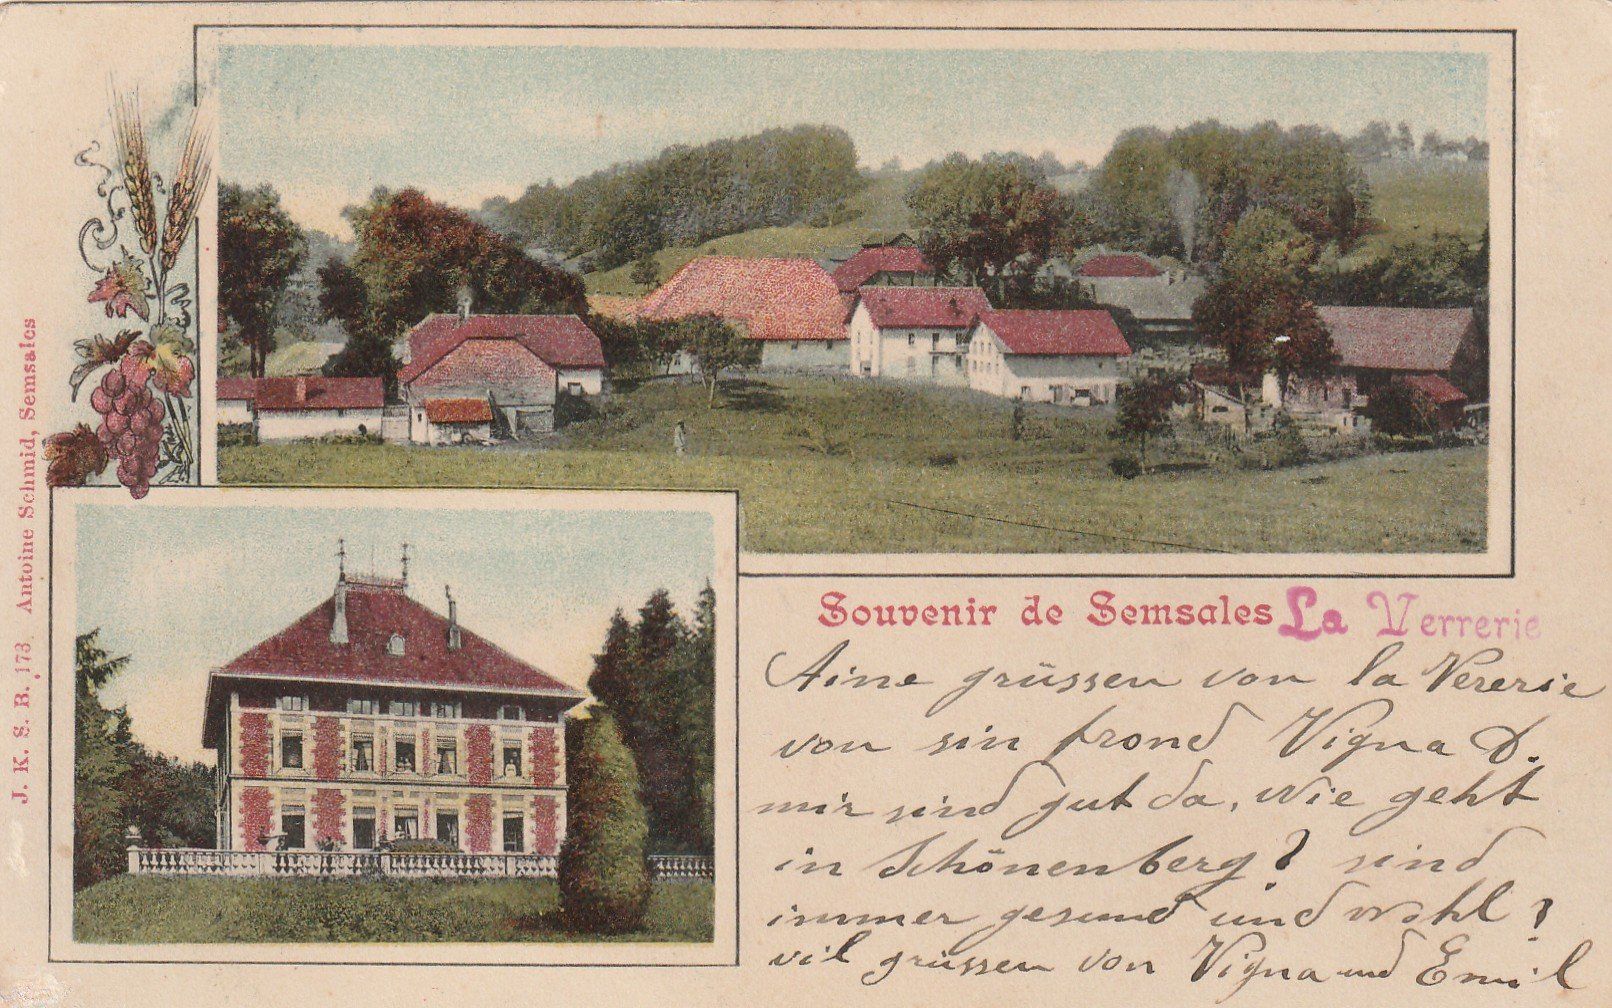 Souvenir de Semsales La Verrerie
Aine grüssen von la Vererie
von sin frond Vigna D.
mir sind gut da, wie geht
in Schönenberg? sind
immer gesund und wohl?
vil grüssen von Vigna und Emil
J. K. S. B. 173 Antoine Schmid, Semsales